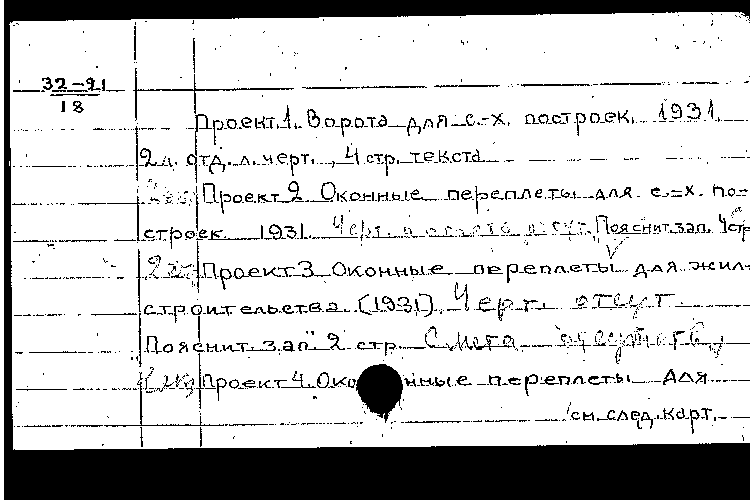 32-91
18
Проект 1. Ворота для с.-х. построек. 1931.
2 л. отд. л. черт., 4 стр. текста
Проект 2. Оконные переплеты для с.-х. по-
строек 1931. Черт. Пояснит. зап. 4 стр
Проект 3. Оконные переплеты для жил-
строительства. (1931). Черт. отсут.
Пояснит. зап. 2 стр. Смета отсутств.,
2 экз Проект 4. Оконные переплеты для
см. след. карт.